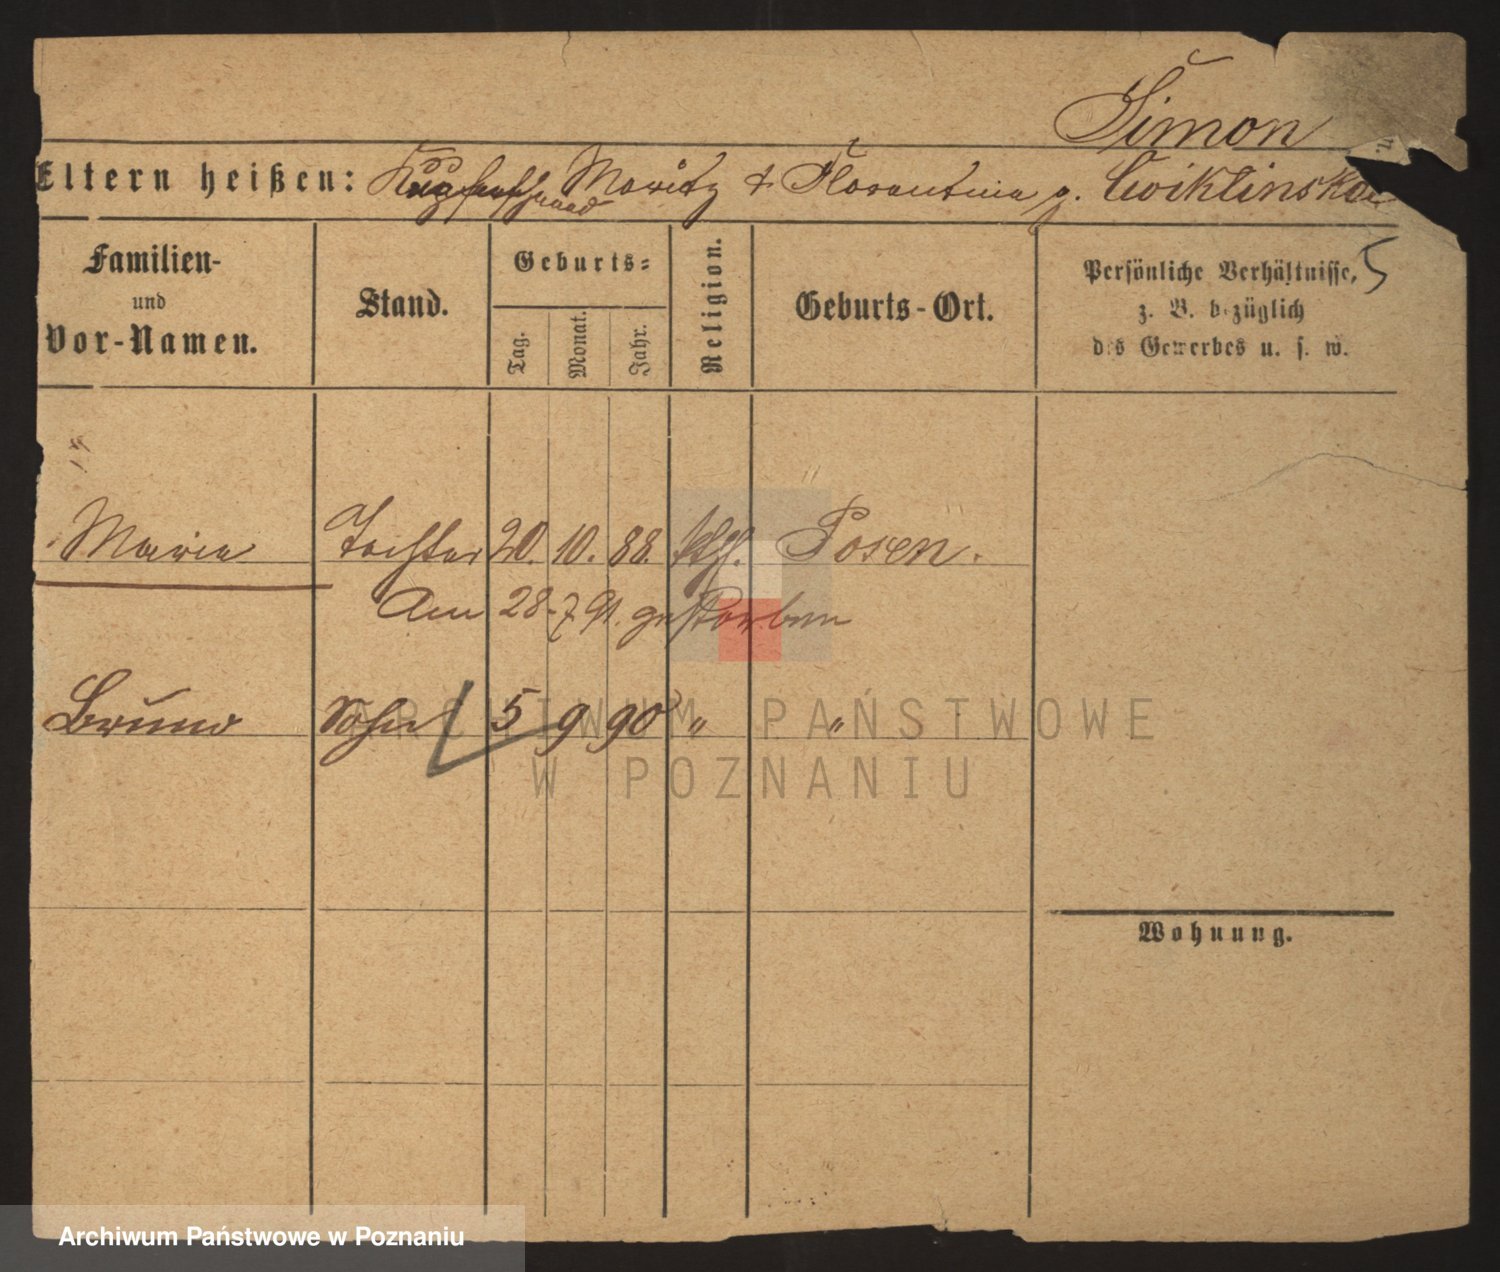 Simon
Eltern heißen: Moritz & Florentina g. Cwiklinska
Familien-
und
Vor-Namen.
Stand.
Geburts-
Tag.
Monat.
Jahr.
Religion.
Geburts-Ort.
Persönliche Verhältnisse, 5
z. B. bezüglich
des Gewerbes u. s. w.
Maria Tochter 20. 10. 88. ktgl. Posen.
Am 28. 7. 91. gestorben
Bruno Sohn 5 9 90 " "
ARCHIWUM PAŃSTWOWE
W POZNANIU
Wohnung.
Archiwum Państwowe w Poznaniu